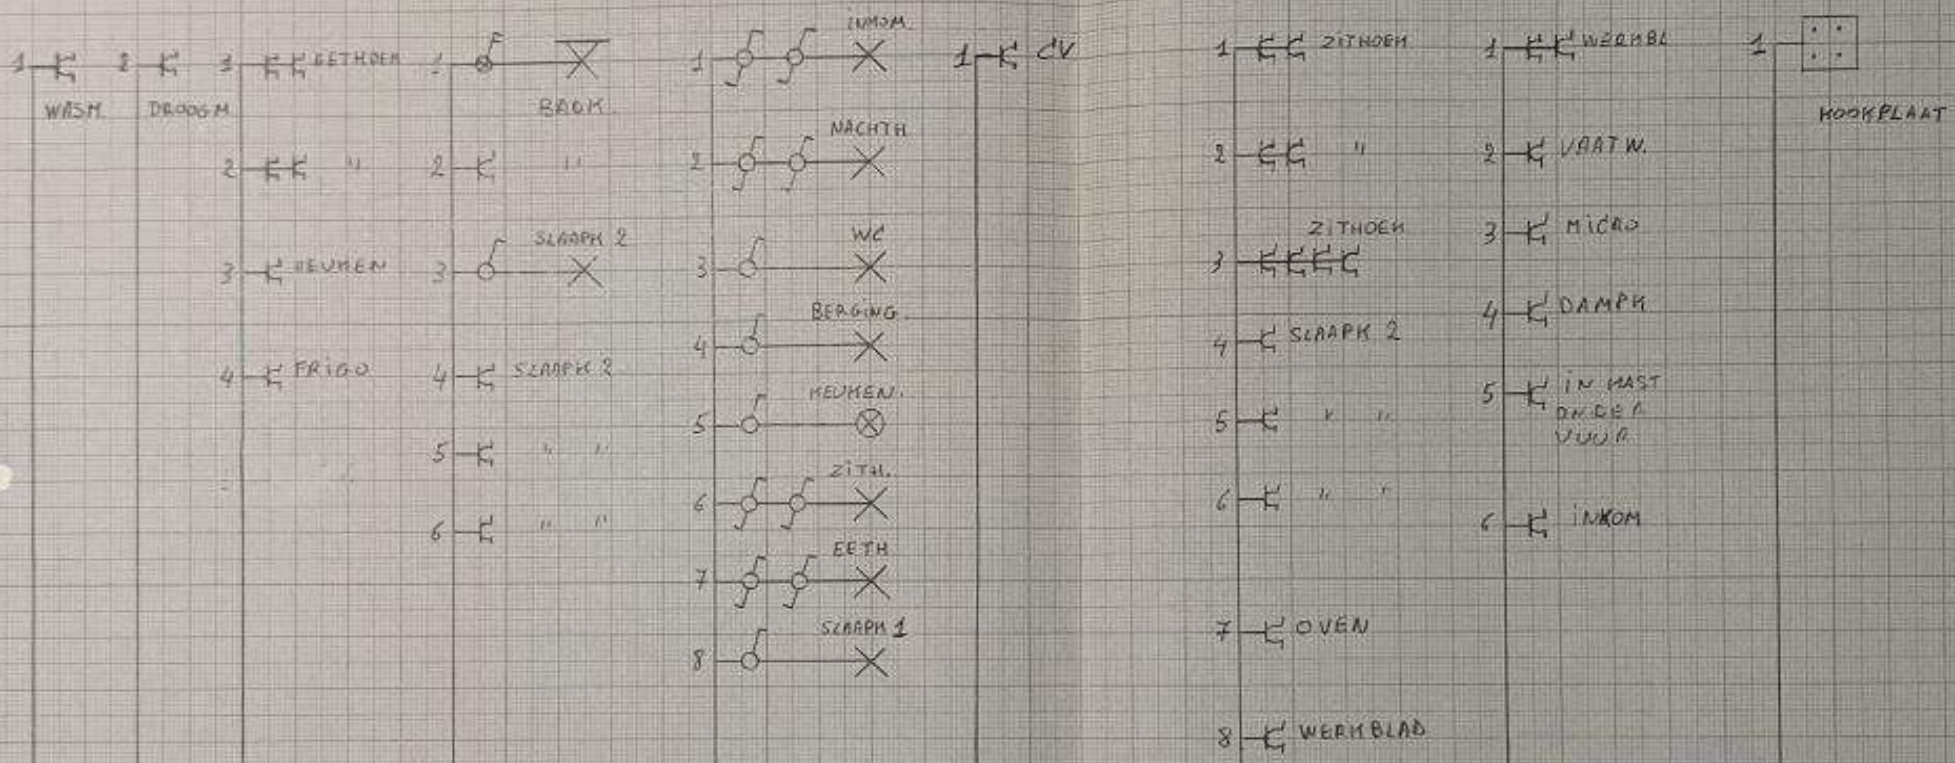 1
WASM.
2
DROOGM
1 EETHOEK
2 "
3 KEUKEN
4 FRIGO
1
BADK.
2 "
SLAAPK 2
3
4 SLAAPK 2
5 " "
6 " "
INKOM.
1
NACHTH
2
WC
3
BERGING.
4
KEUKEN.
5
ZITH.
6
EETH
7
SLAAPK 1
8
1 CV
1 ZITHOEK
2 "
ZITHOEK
3
4 SLAAPK 2
5 " "
6 " "
7 OVEN
8 WERKBLAD
1 WERKBL
2 VAATW.
3 MICRO
4 DAMPK
5 IN KAST
ONDER
VUUR
6 INKOM
1
KOOKPLAAT